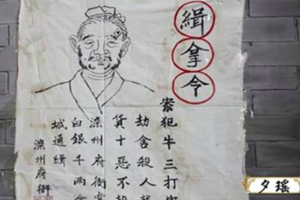 緝拿令
案犯牛三打
劫舍殺人
貨十惡不
滦州府衙
白銀千兩
城通緝
滦州府衙
夕瑤